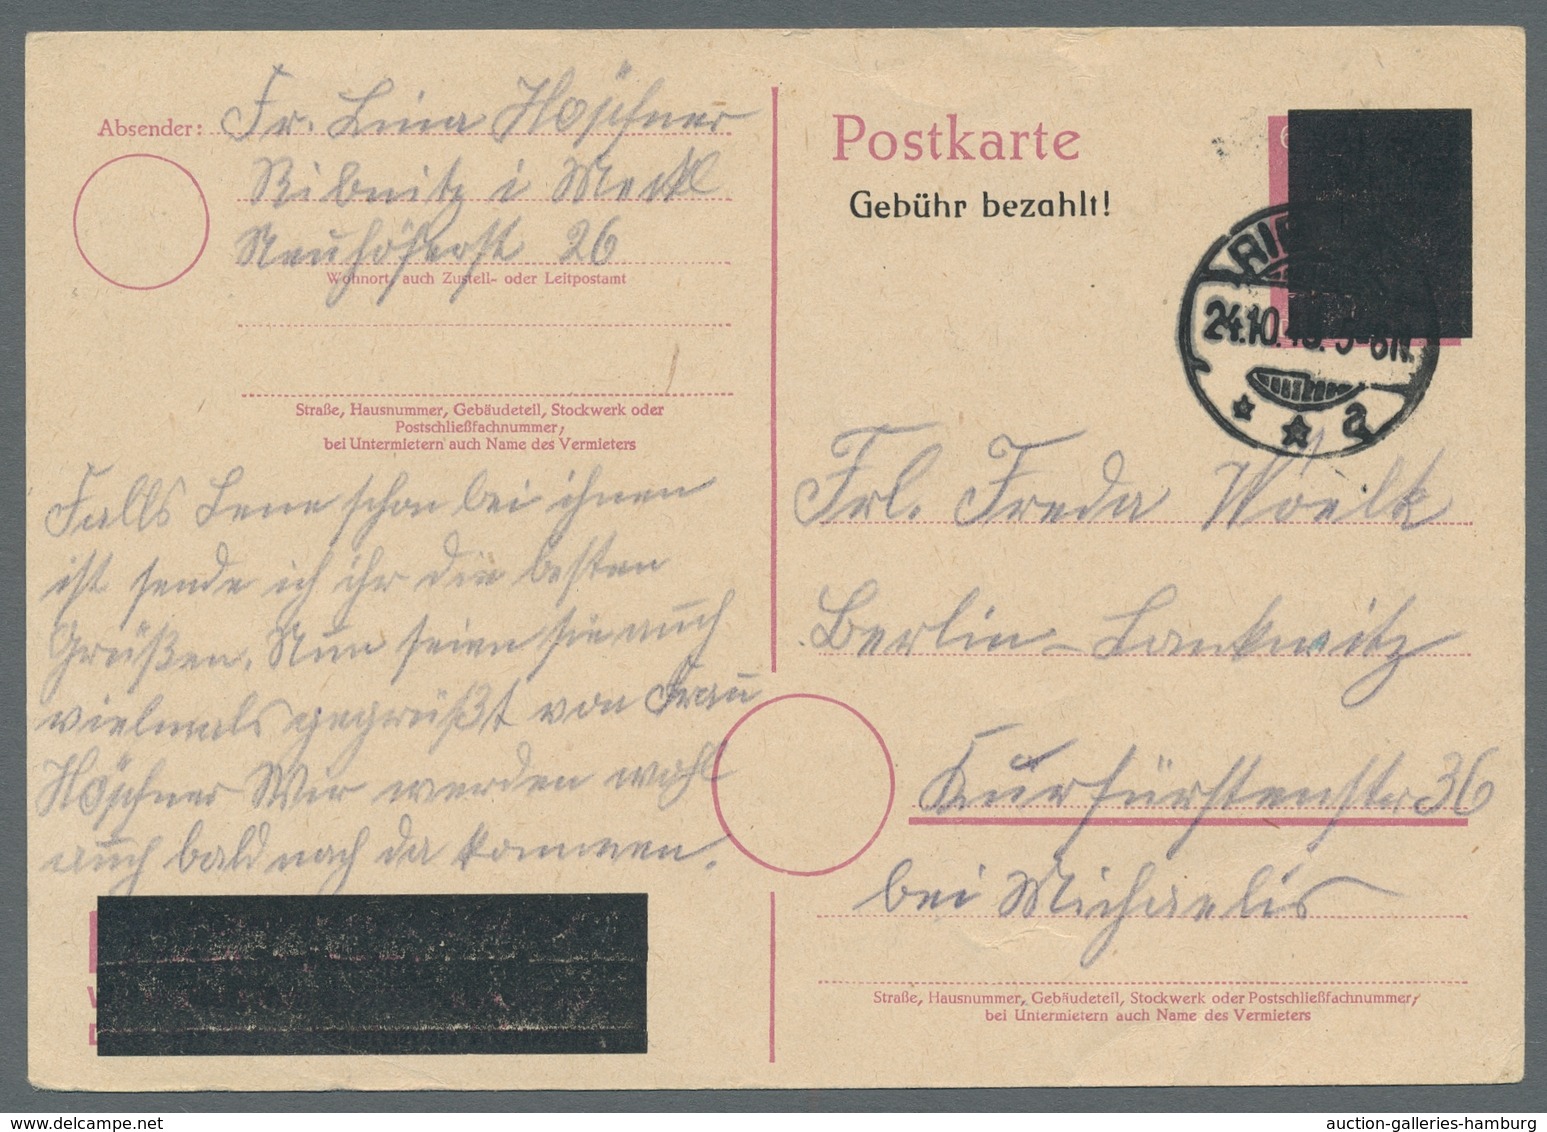 Absender: Fr. Lina Höpfner
Ribnitz i Meckl
Neuhöferstr 26
Wohnort, auch Zustell- oder Leitpostamt
Straße, Hausnummer, Gebäudeteil, Stockwerk oder
Postschließfachnummer,
bei Untermietern auch Name des Vermieters
Falls Lene schon bei ihnen
ist sende ich ihr die besten
Grüßen. Nun seien sie auch
vielmals gegrüßt von Frau
Höpfner Wir werden wohl
auch bald nach da kommen.
Postkarte
Gebühr bezahlt!
6
24.10. 5-6N.
a
Frl. Freda Woelk
Berlin-Lankwitz
Kurfürstenstr 36
bei Michaelis
Straße, Hausnummer, Gebäudeteil, Stockwerk oder Postschließfachnummer,
bei Untermietern auch Name des Vermieters
auction-galleries-hamburg